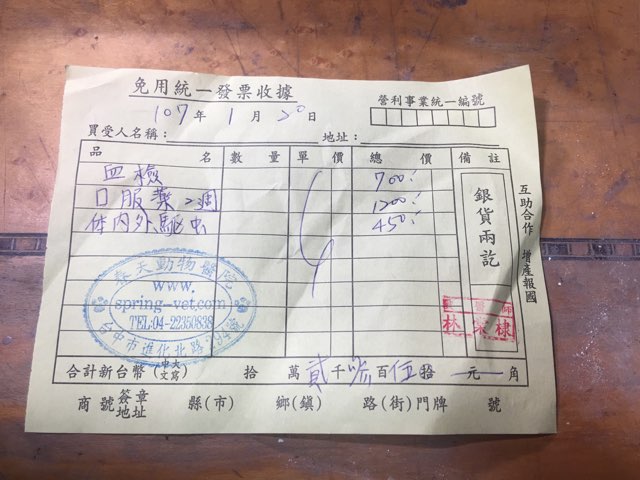 免用統一發票收據
營利事業統一編號
107年 1月 20日
買受人名稱： 地址：
品名 數量 單價 總價 備註
血檢 700
口服藥2週 1200
体內外驅虫 450
銀貨兩訖
互助合作 增產報國
春天動物醫院
www.
spring-vet.com
TEL:04-22350838
台中市進化北路
林 棣
合計新台幣(中文大寫) 拾 萬 貳 千 參 百 伍 拾 元 角
商號簽章地址 縣(市) 鄉(鎮) 路(街)門牌 號